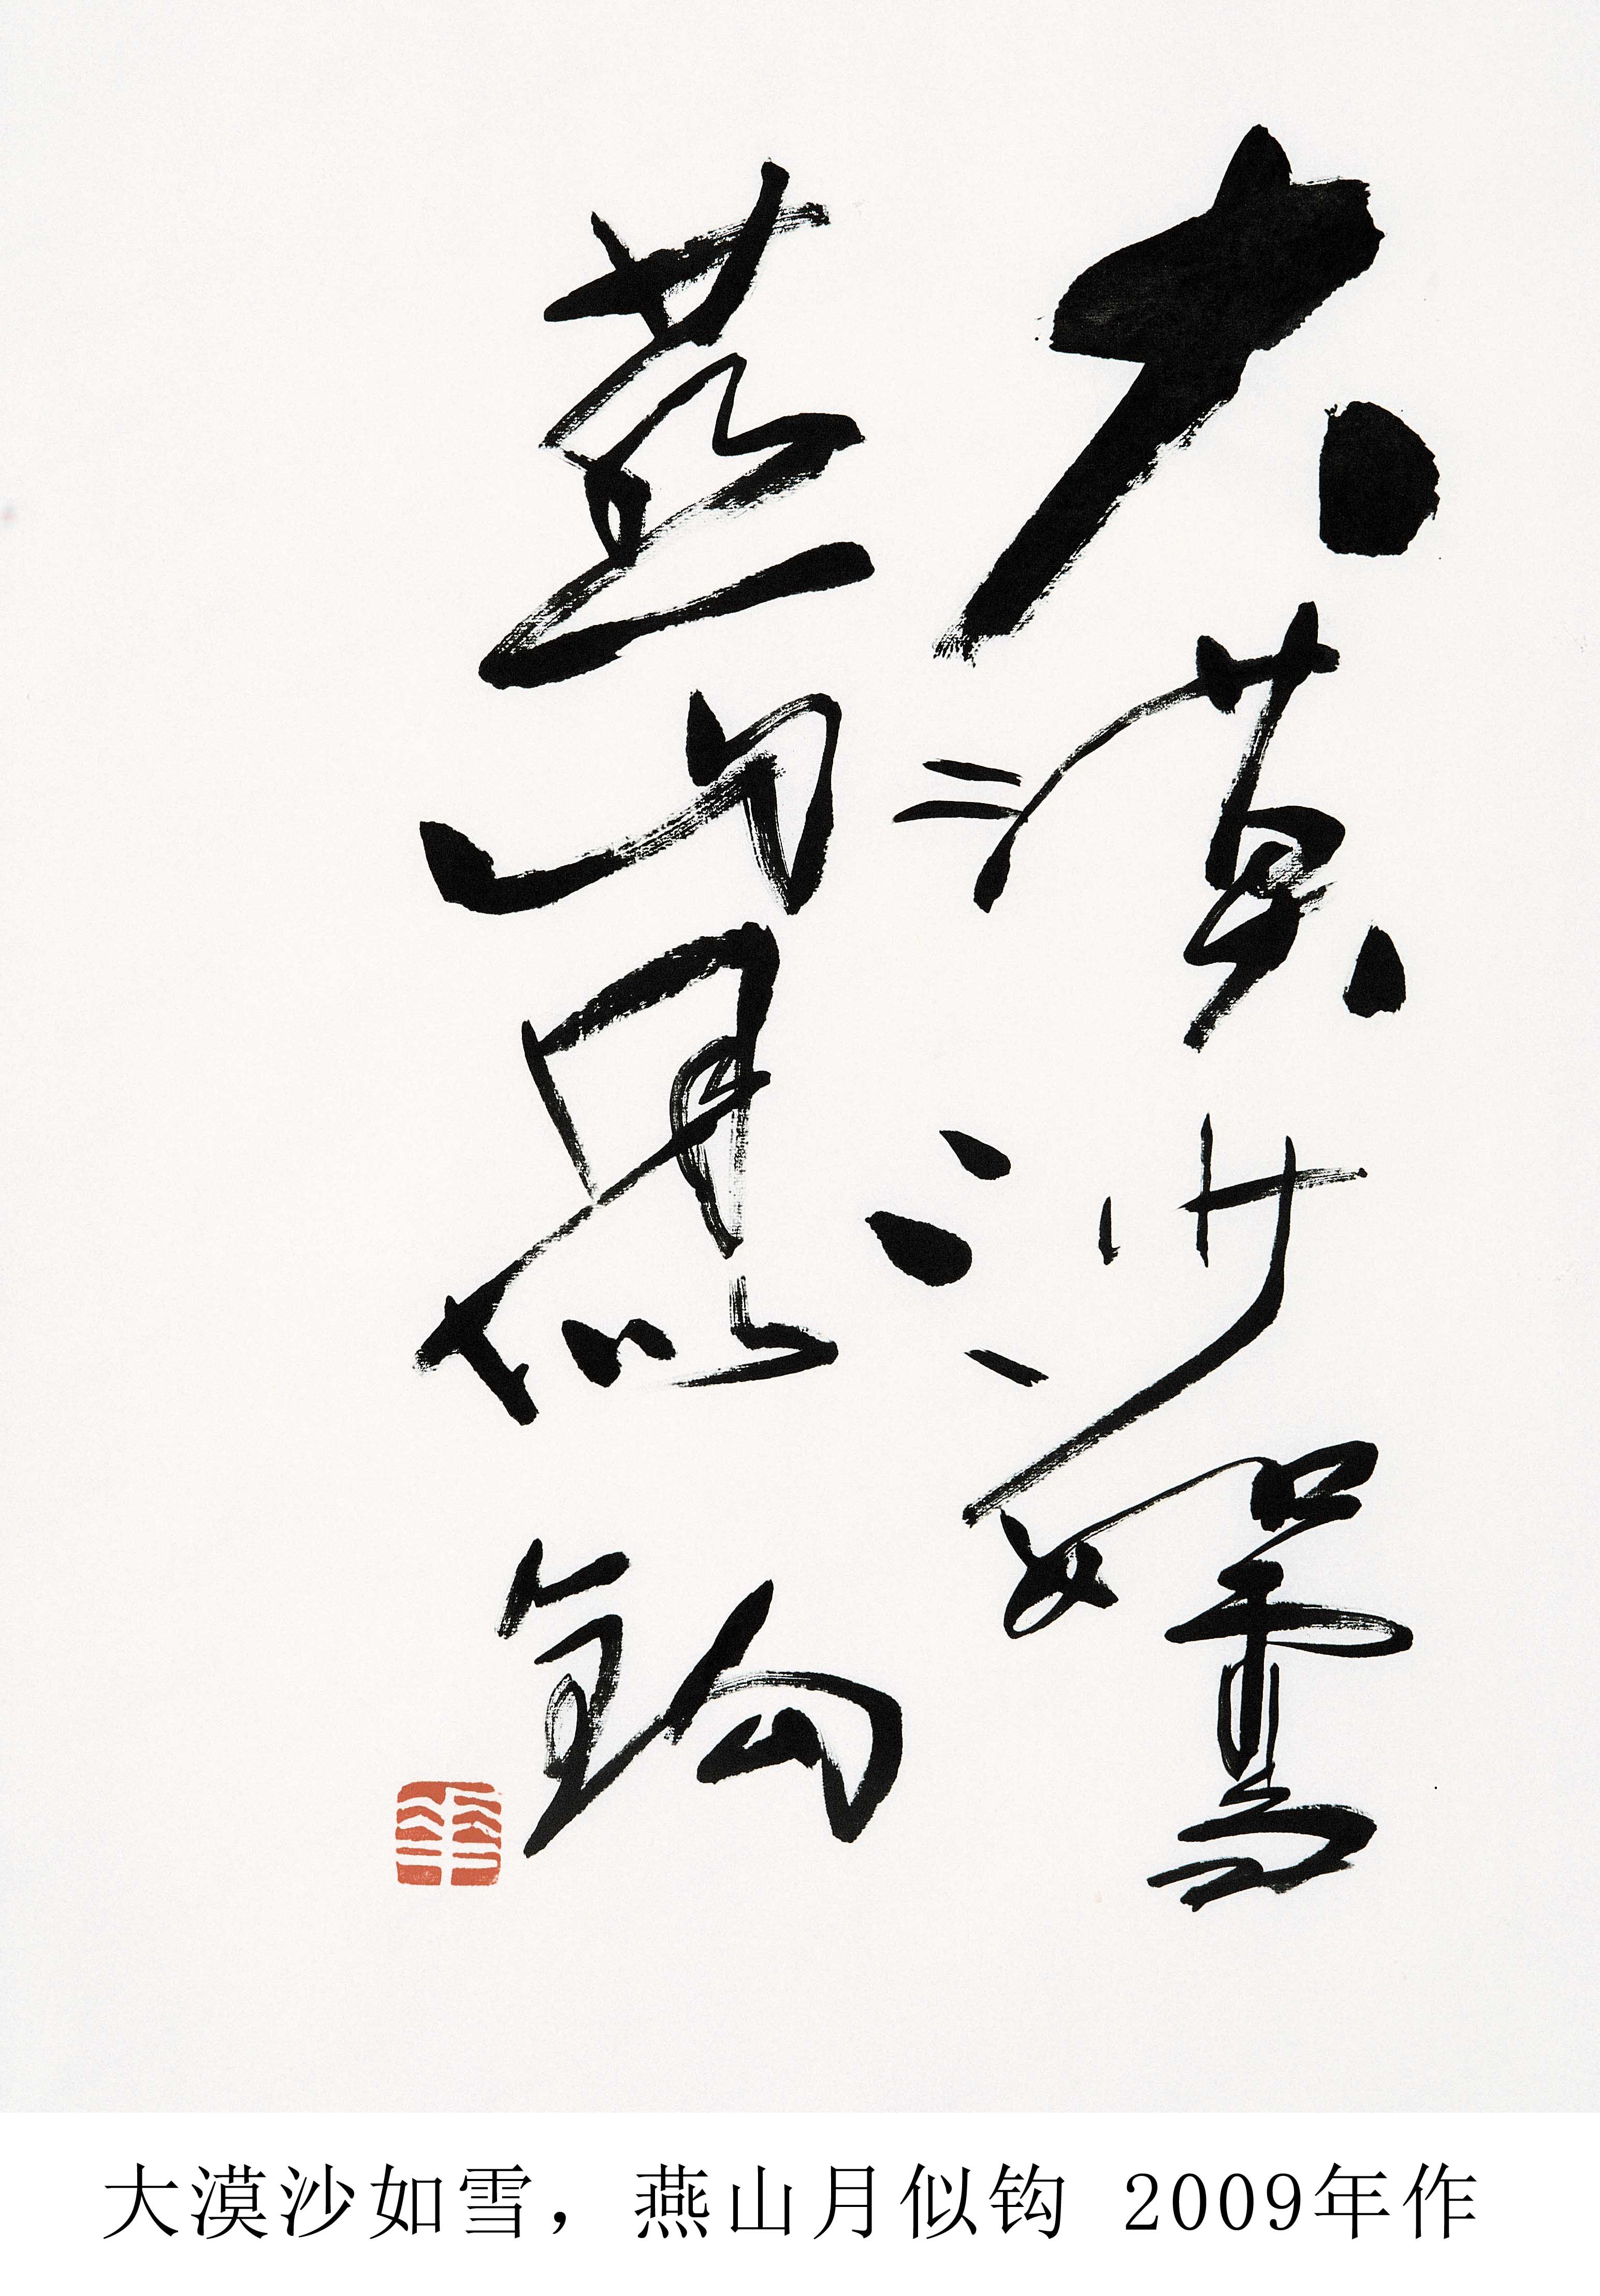 大漠沙如雪
燕山月似钩
大漠沙如雪，燕山月似钩 2009年作